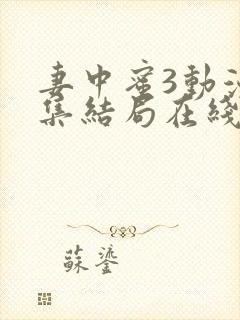 妻中蜜3動
集結局在綫
蘇鎏